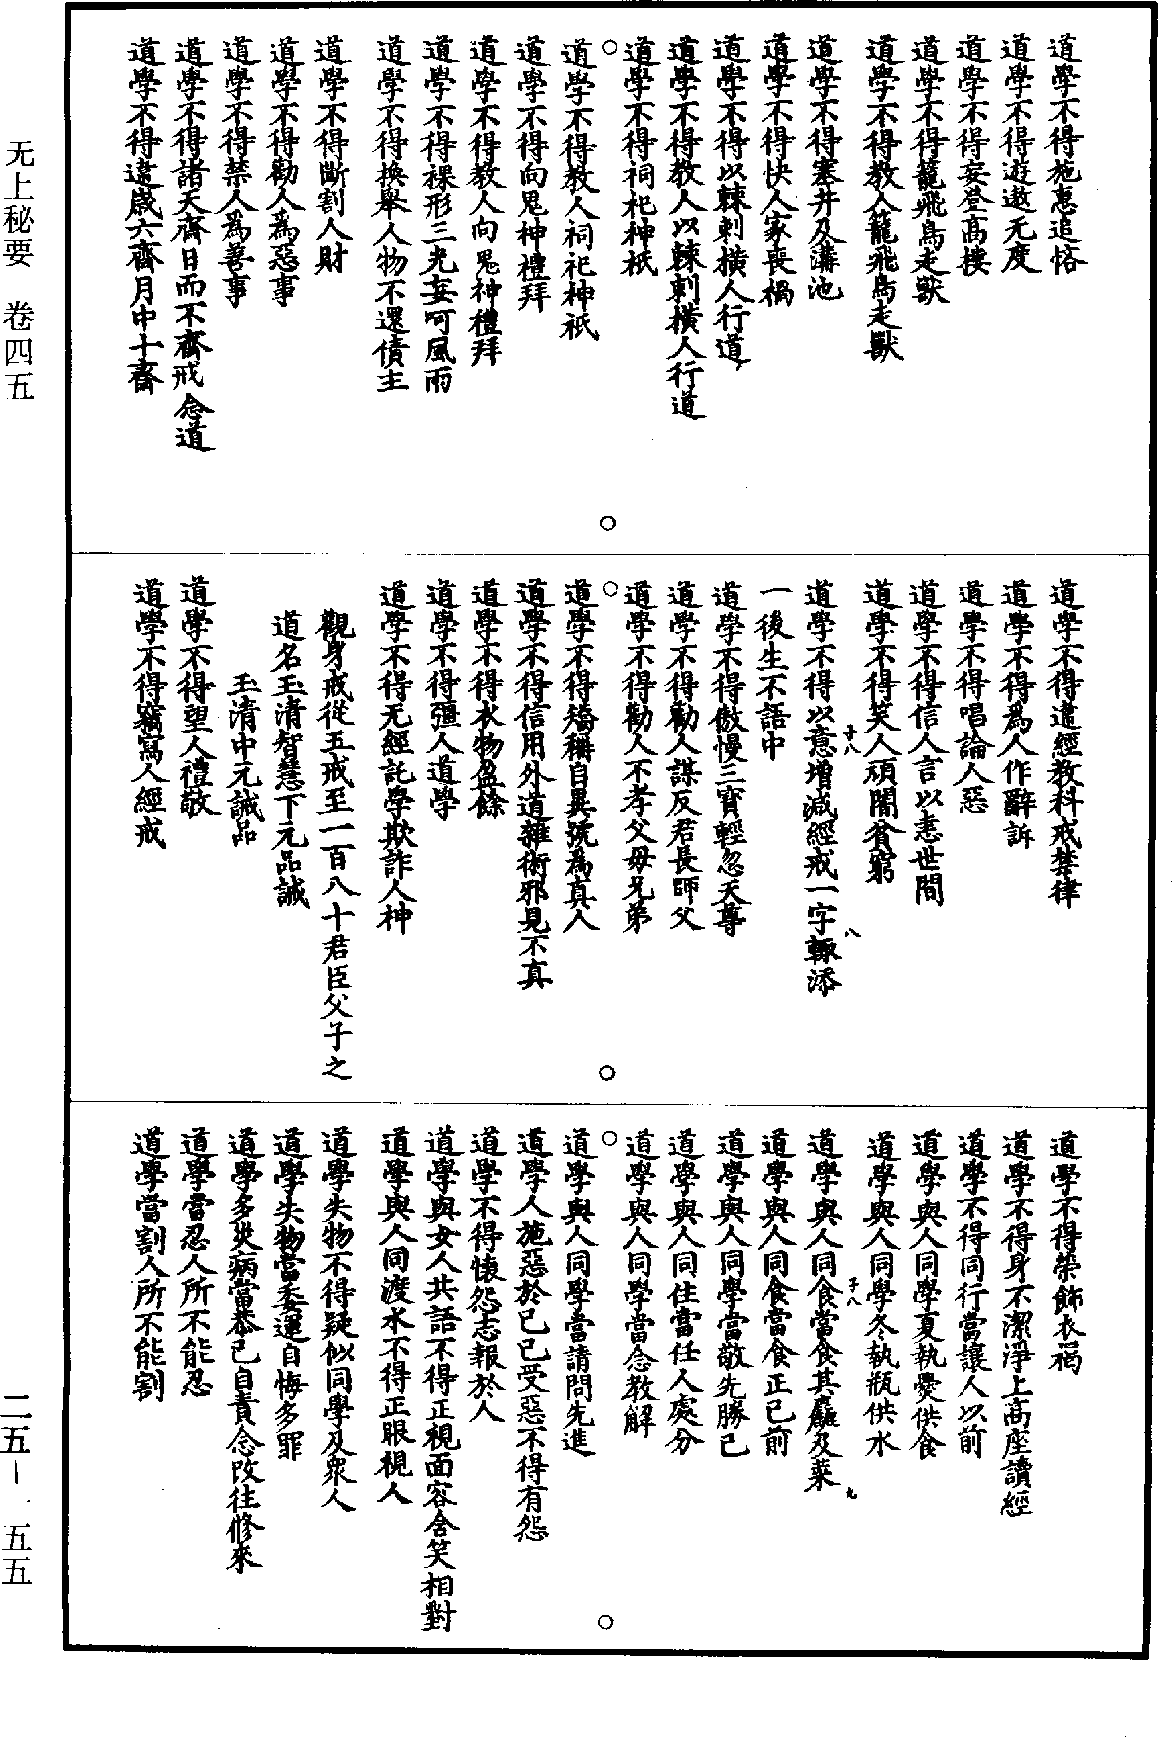 道學不得施惠追悋
道學不得遊遨无度
道學不得妄登高樓
道學不得籠飛鳥走獸
道學不得教人籠飛鳥走獸
道學不得塞井及溝池
道學不得快人家喪禍
道學不得以棘刺橫人行道
道學不得教人以棘刺橫人行道
道學不得祠祀神祇
道學不得教人祠祀神祇
道學不得向鬼神禮拜
道學不得教人向鬼神禮拜
道學不得裸形三光妄呵風雨
道學不得換舉人物不還債主
道學不得斷割人財
道學不得勸人為惡事
道學不得禁人為善事
道學不得諸天齋日而不齋戒念道
道學不得違歲六齋月中十齋
道學不得違經教科戒禁律
道學不得為人作辭訴
道學不得唱論人惡
道學不得信人言以恚世間
道學不得笑人頑闇貧窮
道學不得以意增減經戒一字輙添
一後生不語中
道學不得傲慢三寶輕忽天尊
道學不得勸人謀反君長師父
道學不得勸人不孝父母兄弟
道學不得矯稱自異號為真人
道學不得信用外道雜術邪見不真
道學不得衣物盈餘
道學不得彊人道學
道學不得无經託學欺詐人神
觀身戒從五戒至一百八十君臣父子之
道名玉清智慧下元品誡
玉清中元誡品
道學不得望人禮敬
道學不得竊寫人經戒
道學不得榮飾衣褐
道學不得身不潔淨上高座讀經
道學不得同行當讓人以前
道學與人同學夏執爨供食
道學與人同學冬執瓶供水
道學與人同食當食其麤及菜
道學與人同食當食正己前
道學與人同學當敬先勝己
道學與人同住當任人處分
道學與人同學當念教解
道學與人同學當請問先進
道學人施惡於己己受惡不得有怨
道學不得懷怨志報於人
道學與女人共語不得正視面容含笑相對
道學與人同渡水不得正眼視人
道學失物不得疑似同學及衆人
道學失物當委運自悔多罪
道學多災病當恭己自責念改往修來
道學當忍人所不能忍
道學當割人所不能割
无上秘要 卷四五
二五–一五五